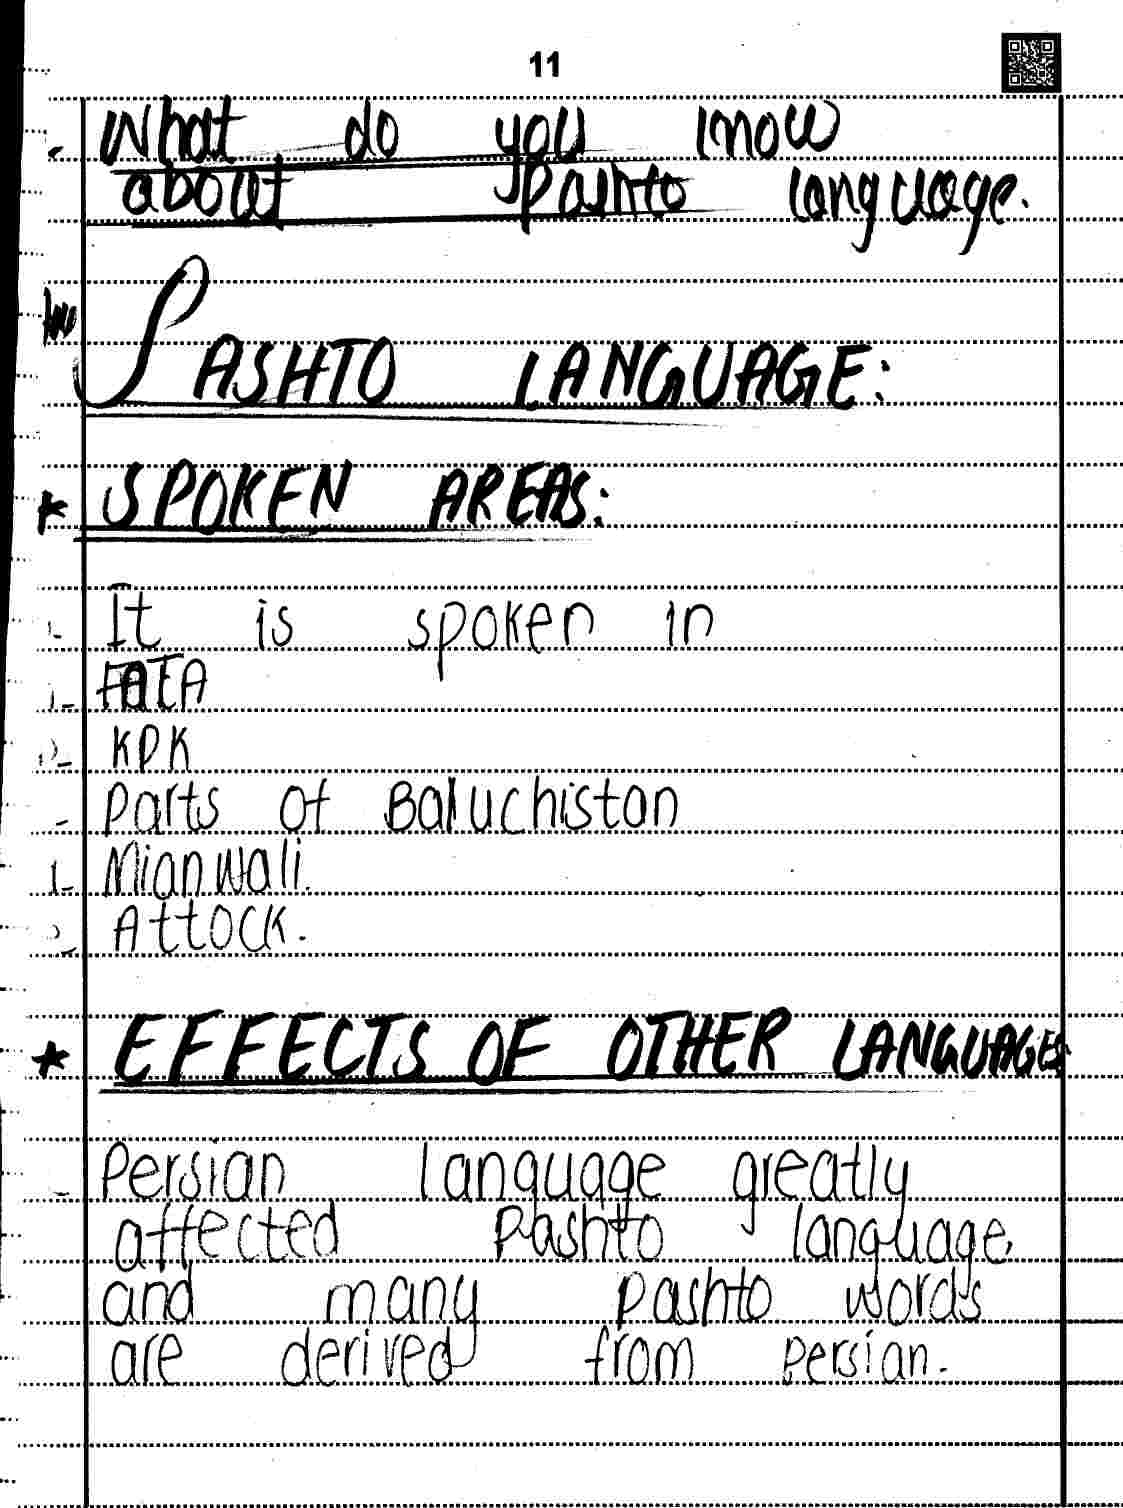 11
What do you know
about Pashto language.
PASHTO LANGUAGE:
* SPOKEN AREAS:
It is spoken in
FATA
KPK
Parts of Baluchistan
Mianwali.
Attock.
* EFFECTS OF OTHER LANGUAGES
Persian language greatly
affected Pashto language
and many Pashto words
are derived from Persian.